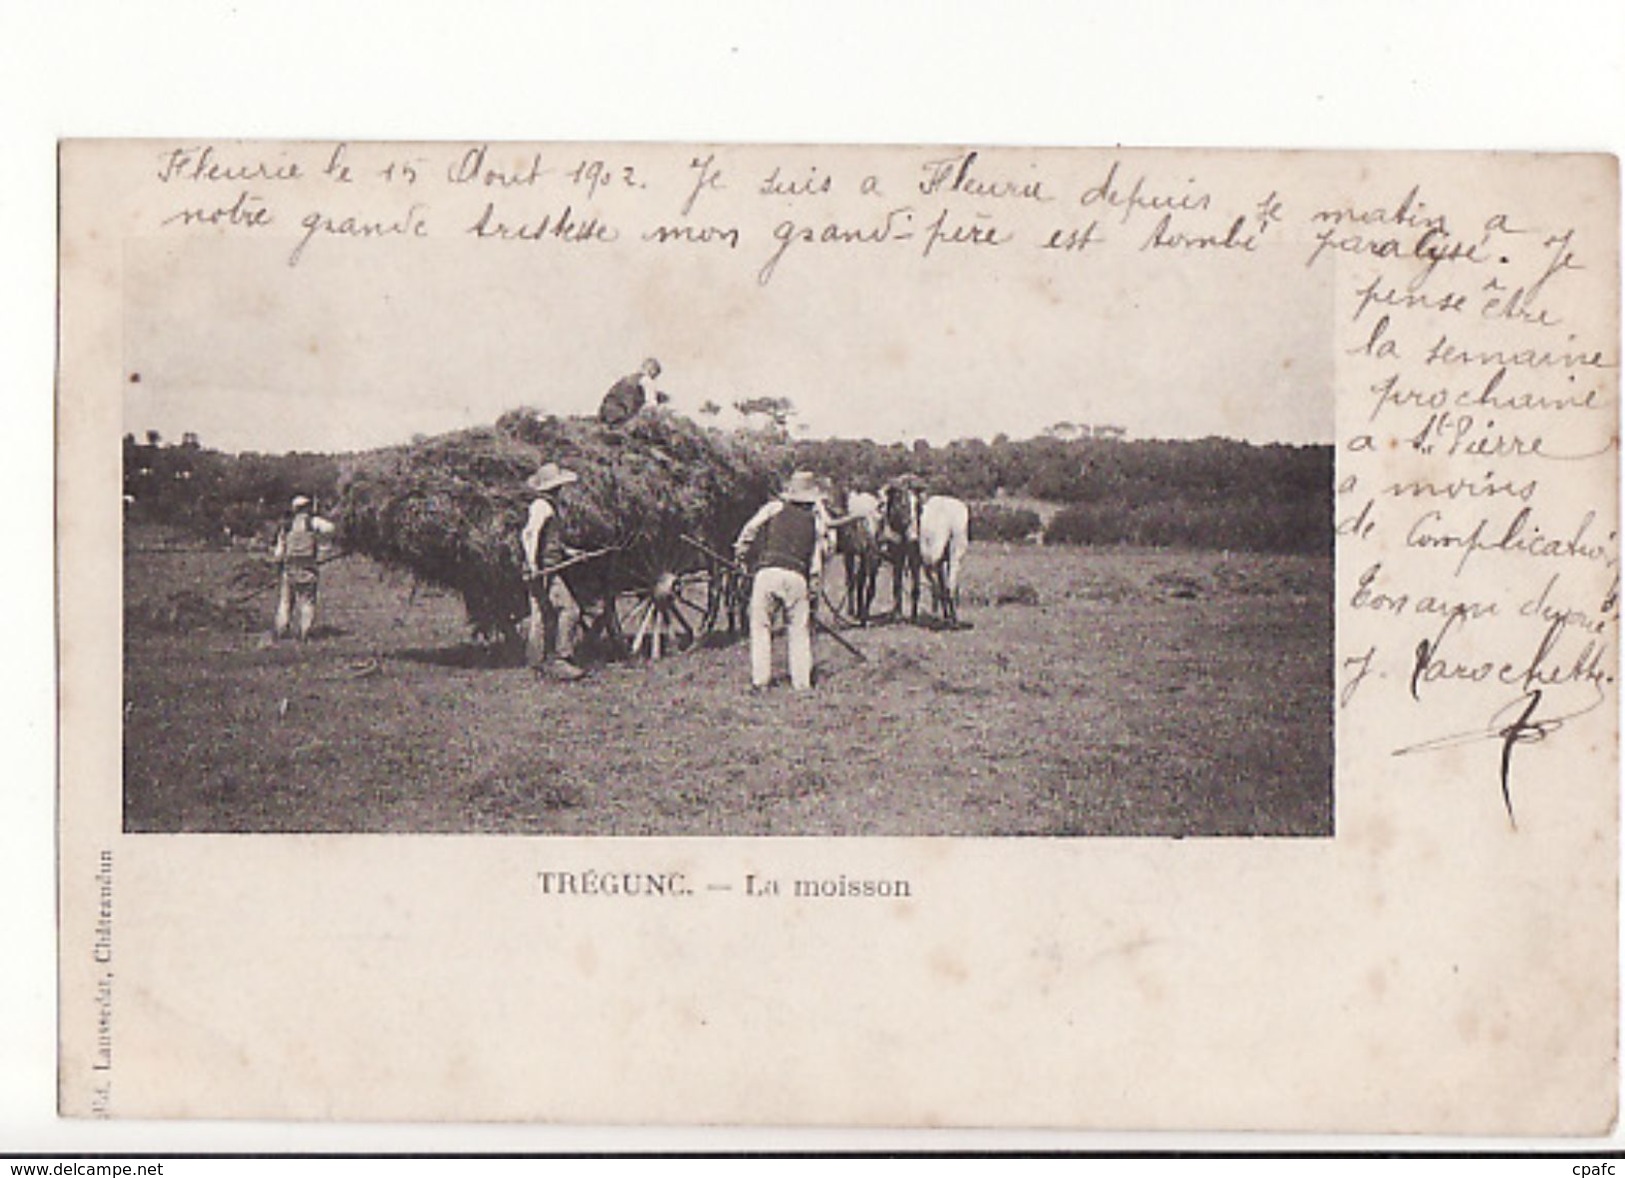 Fleurie le 15 Août 1902. Je suis a Fleurie depuis se matin a
notre grande tristesse mon grand-père est tombé paralysé. Je
pense être
la semaine
prochaine
a St Pierre
a moins
de complication
Ton ami devoué
J. Larochette
TRÉGUNC. — La moisson
Ed. Laussedat, Châteaudun
www.delcampe.net
cpafc